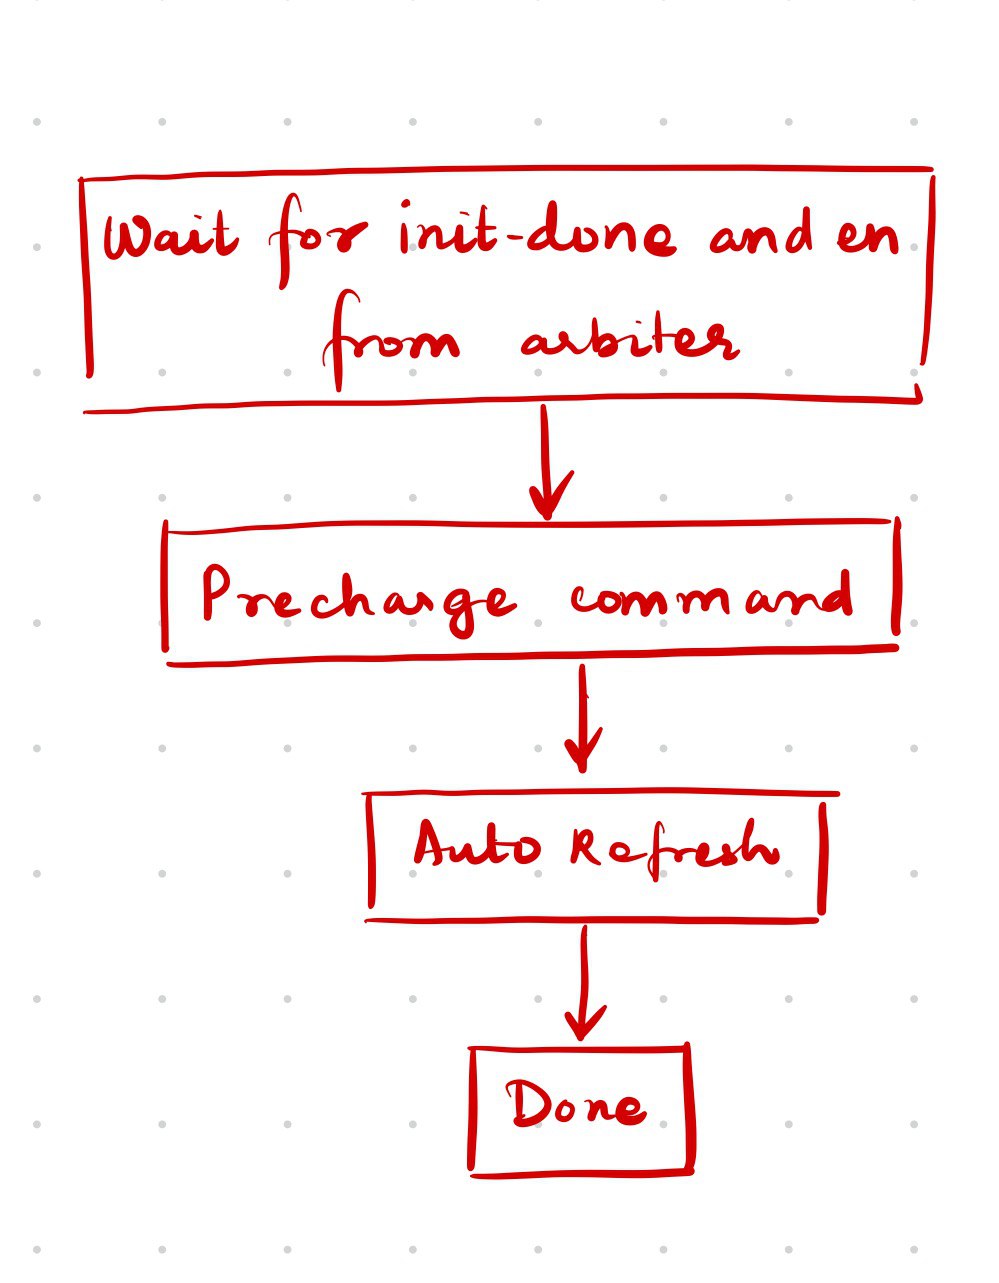 Wait for init-done and en
from arbiter
Precharge command
Auto Refresh
Done